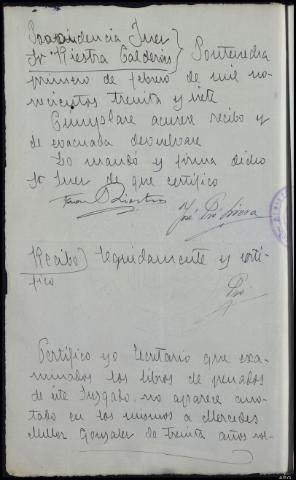 Providencia Juez
Sr Riestra Calderón } Pontevedra
primero de febrero de mil no-
vecientos treinta y siete
Cumplase acuse recibo y
de evacuada devuelvase
Lo mandó y firma dicho
Sr Juez de que certifico
Ramon Riestra
José Pio Rivera
Recibo) Seguidamente y certi-
fico
Pio
Certifico yo Secretario que exa-
minados los libros de penados
de este Juzgado, no aparece ano-
tado en los mismos a Mercedes
Miller Gonzalez de treinta años sol-